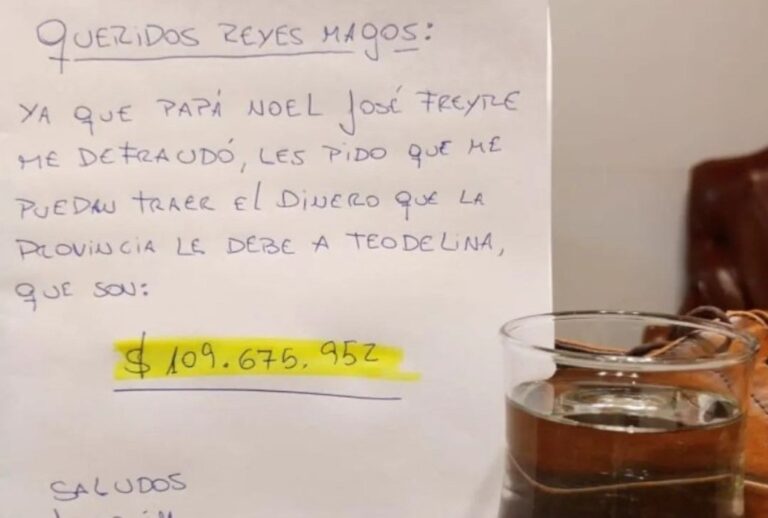 QUERIDOS REYES MAGOS:
YA QUE PAPÁ NOEL JOSÉ FREYRE
ME DEFRAUDÓ, LES PIDO QUE ME
PUEDAN TRAER EL DINERO QUE LA
PROVINCIA LE DEBE A TEODELINA,
QUE SON:
$ 109.675.952
SALUDOS